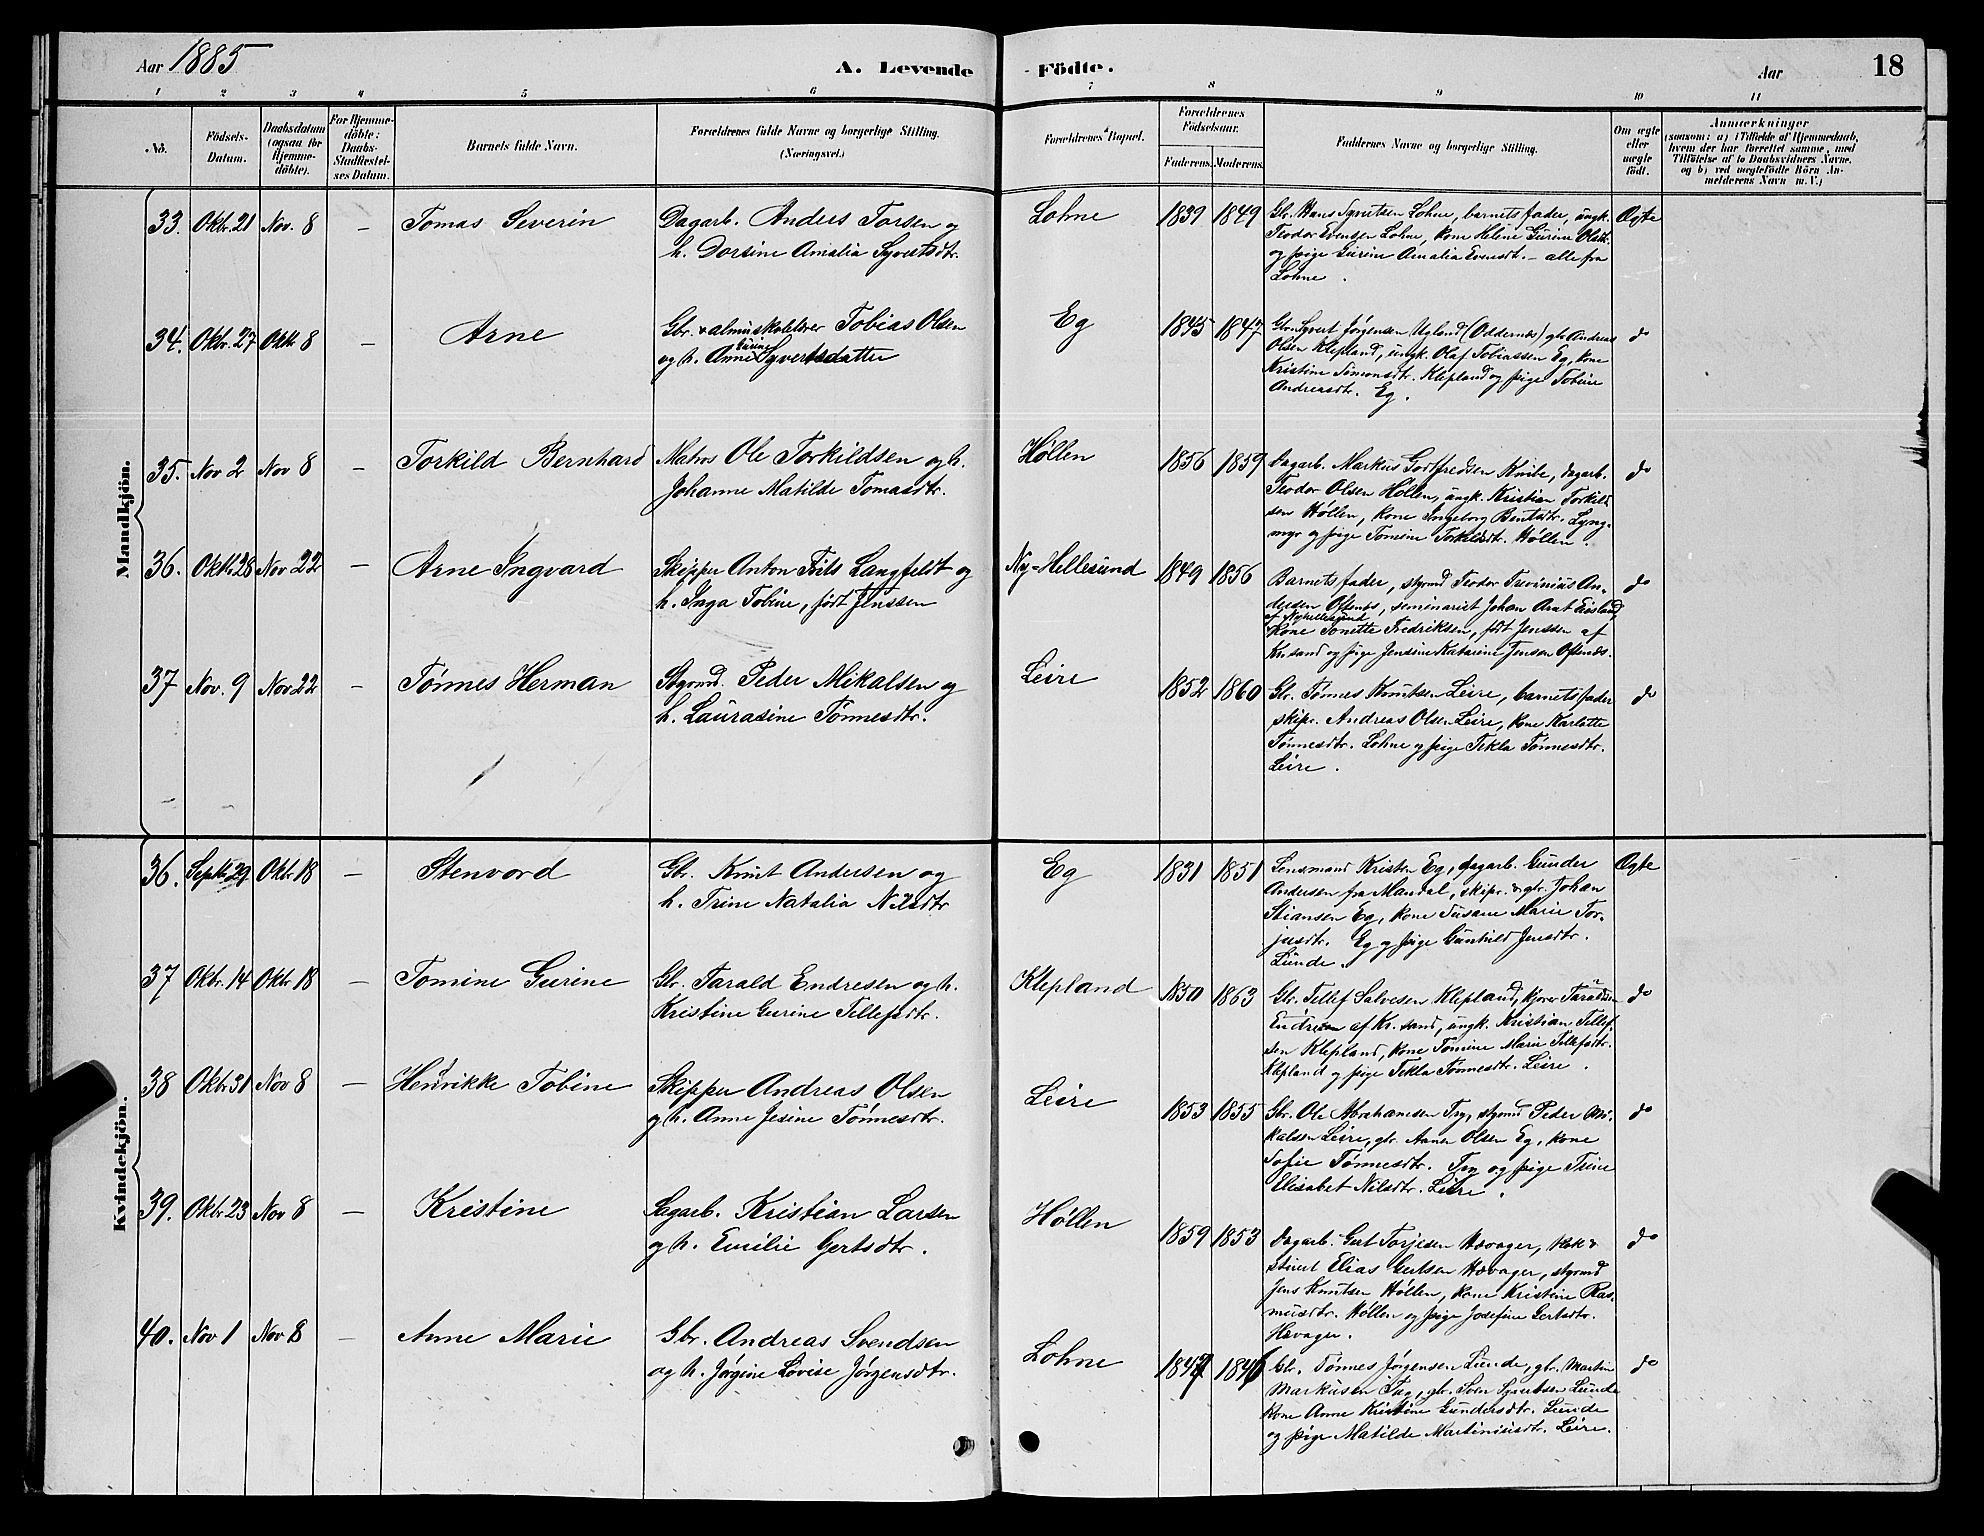 Aar 1885
A. Levende
Födte.
Aar
18
1 2 3 4 5 6 7 8 9 10 11
No.
Födsels-
Datum.
Daabsdatum
(ogsaa for
Hjemme-
döbte).
For Hjemme-
döbte:
Daabs-
Stadfæstel-
ses Datum.
Barnets fulde Navn.
Forældrenes fulde Navne og borgerlige Stilling.
(Næringsvei.)
Forældrenes Bopæl.
Forældrenes
Födselsaar.
Faderens. Moderens.
Faddernes Navne og borgerlige Stilling.
Om ægte
eller
uægte
födt.
Anmærkninger
(saasom: a) i Tilfælde af Hjemmedaab,
hvem der har forrettet samme, med
Tilföielse af to Daabsvidners Navne,
og b) ved uægtefödte Börn An-
melderens Navn m. V.)
Mandkjön.
33. Oktbr. 21 Nov. 8 – Tomas Severin
Dagarb. Anders Torsen og
h. Dorsine Amalia Syvertsdtr.
Lohne 1839 1849
Gbr. Hans Syvertsen Lohne, barnets fader, ungk.
Teodor Evensen Lohne, kone Helene Gurine Olsdtr.
og pige Gurine Amalia Evensdt. – alle fra
Lohne.
Ægte
34. Oktbr. 27 8 – Arne
Gbr. & almuskolelærer Tobias Olsen
og h. Anne Gurine Syvertsdatter
Eg 1845 1847
Gbr. Syvert Jørgensen Ugland (Oddernæs) gbr Andreas
Olsen Klepland, ungk. Olaf Tobiassen Eg, kone
Kristine Simonsdtr. Klepland og pige Tobine
Andreasdtr. Eg.
do
35. Nov 2 Nov 8 – Torkild Bernhard
Matros Ole Torkildsen og h.
Johanne Matilde Tomasdtr.
Høllen 1856 1859
Dagarb. Markus Gottfredsen Knibe, dagarb.
Teodor Olsen Høllen, ungk. Kristian Torkild
sen Høllen, kone Ingeborg Bentsdtr. Lyng-
myr og pige Tomine Torkildsdtr. Høllen.
do
36. Oktbr. 28 Nov 22 – Arne Ingvard
Skipper Anton Fritz Langfeldt og
h. Inga Tobine, født Jenssen
Ny-Hellesund 1849 1856
Barnets fader, styrmd Teodor An-
dersen Oftenes, seminariet Johan Arnt
af Nyhellesund
kone Tonette Fredriksen, født Jenssen af
Krsand og pige Jensine Katarine Jensen Oftenæs.
do
37 Nov. 9 Nov 22 – Tønnes Herman
Styrmd. Peder Mikalsen og
h. Laurasine Tønnesdtr.
Leire 1852 1860
Gbr. Tønnes Knutsen Leire, barnets fader
skipr. Andreas Olsen Leire, kone Karlotte
Tønnesdtr. Lohne og pige Tekla Tønnesdtr.
Leire.
do
Kvindekjön.
36. Septbr. 29 Oktbr. 18 – Stenvord
Gbr. Knut Andersen og
h. Trine Natalia Nilsdtr
Eg 1831 1851
Lensmand Kristen Eg, dagarb. Gunder
Andersen fra Mandal, skipr. & gbr. Johan
Stiansen Eg, kone Susane Marie Tor-
jusdtr. Eg og pige Gunhild Jensdtr.
Lunde.
Ægte
37 Oktbr. 14 Oktbr 18 – Tomine Gurine
Gbr. Tarald Endresen og h.
Kristine Gurine Tellefsdtr.
Klepland 1850 1863
Gbr. Tellef Salvesen Klepland,
Endresen af Kr.sand, ungk. Kristian Tellef-
sen Klepland, kone Tomine Marie Tellefsdtr.
Klepland og pige Tekla Tønnesdtr. Leire.
do
38 Oktbr 31 Nov 8 – Henrikke Tobine
Skipper Andreas Olsen
og h. Anne Jesine Tønnesdtr.
Leire 1853 1855
Gbr. Ole Abrahamsen Try, styrmd Peder Mi-
kalsen Leire, gbr. Aanen Olsen Eg, kone
Sofie Tønnesdtr. Try og pige Trine
Elisabet Nilsdtr. Leire.
do
39. Oktbr. 23 Nov 8 – Kristine
Dagarb. Kristian Larsen
og h. Emilie Gertsdtr.
Høllen 1859 1853
Dagarb. Gert Torjesen Hævager, kok &
stuert Elias Gertsen Hævager, styrmd
Jens Knutsen Høllen, kone Kristine Ras-
musdtr. Høllen og pige Josefine Gertsdtr.
Hævager.
do
40. Nov 1 Nov 8 – Anne Marie
Gbr. Andreas Svendsen
og h. Jørgine Lovise Jørgensdtr.
Lohne 1847 1846
Gbr. Tønnes Jørgensen Lunde, gbr. Martin
Markusen Tag, gbr. Sven Syvertsen Lunde
kone Anne Kristine Gundersdtr. Lunde
og pige Matilde Martiniusdtr. Leire.
do